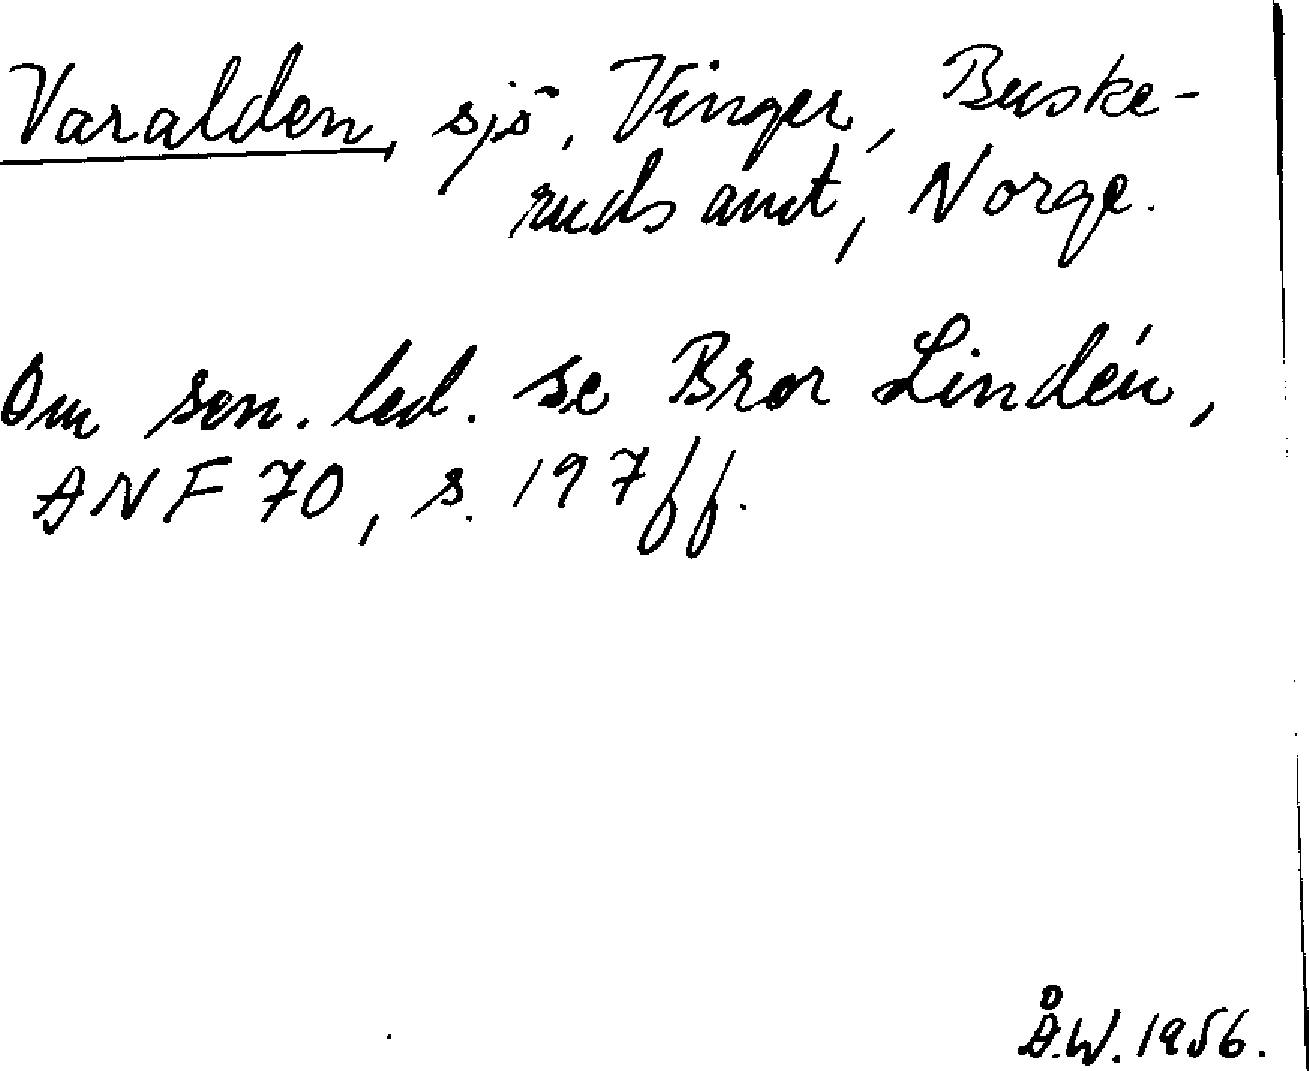 Varalden, sjö, Vinger, Buske-
ruds amt, Norge.
Om sen. led. se Bror Lindén,
ANF 70, s. 197 ff.
Å.W. 1956.